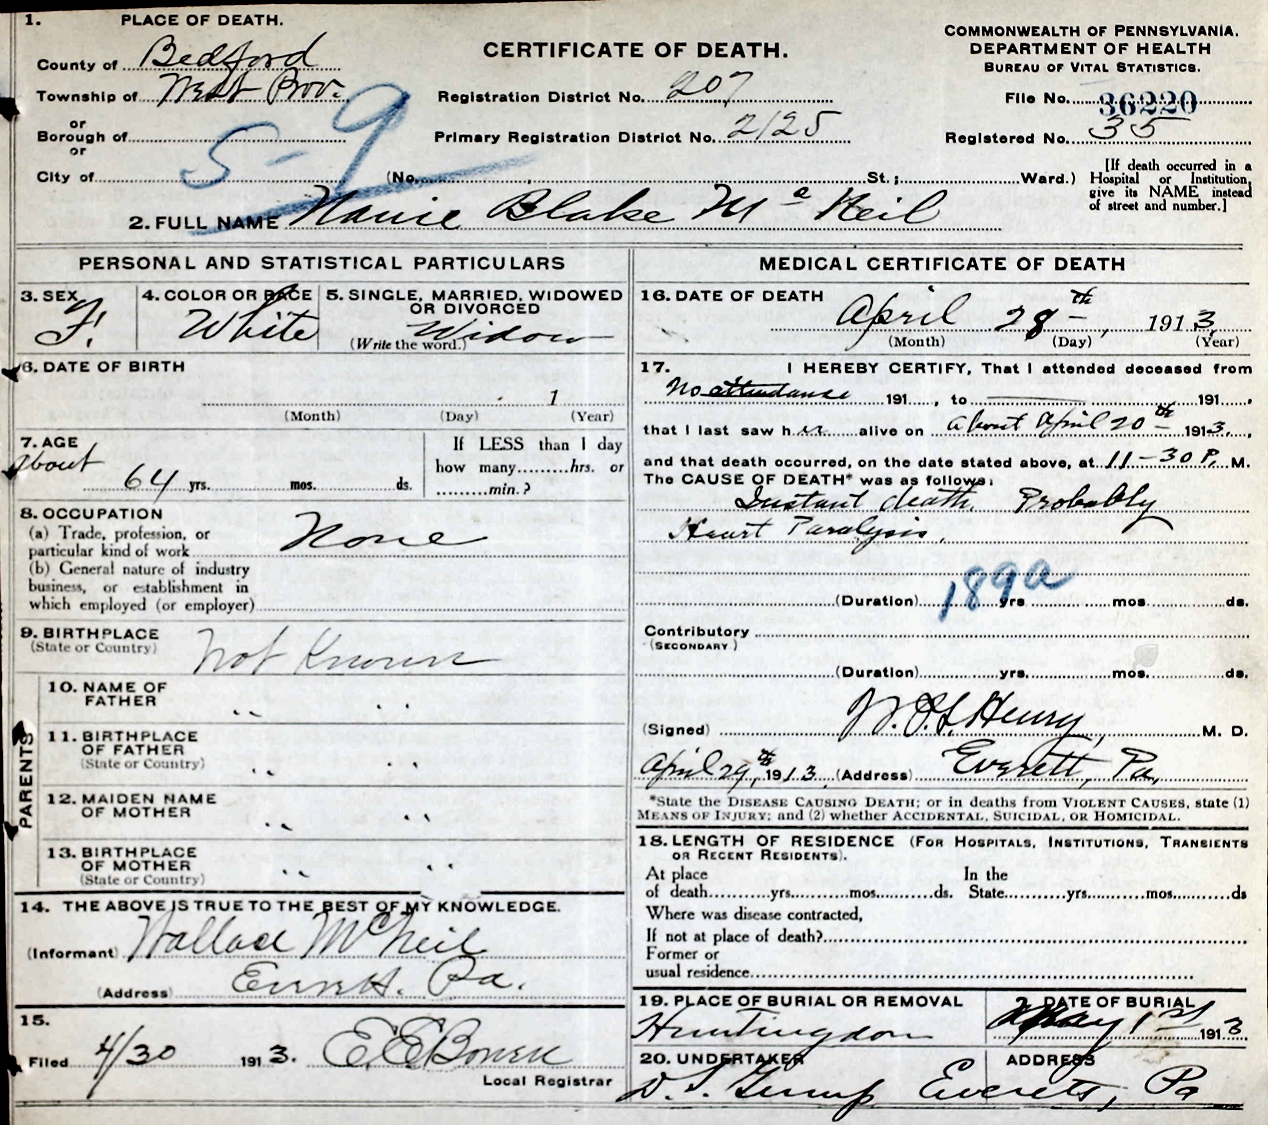 1. PLACE OF DEATH.
County of Bedford
Township of West Prov.
or
Borough of
or
City of
CERTIFICATE OF DEATH.
Registration District No. 207
Primary Registration District No. 2125
(No. , St.; Ward.)
COMMONWEALTH OF PENNSYLVANIA.
DEPARTMENT OF HEALTH
BUREAU OF VITAL STATISTICS.
File No. 36220
Registered No. 35
[If death occurred in a
Hospital or Institution,
give its NAME instead
of street and number.]
5-9
2. FULL NAME Nanie Blake Mc Neil
PERSONAL AND STATISTICAL PARTICULARS
3. SEX
F.
4. COLOR OR RACE
White
5. SINGLE, MARRIED, WIDOWED
OR DIVORCED
(Write the word.) Widow
6. DATE OF BIRTH
1
(Month) (Day) (Year)
7. AGE
About
64 yrs. mos. ds.
If LESS than 1 day
how many hrs. or
min.?
8. OCCUPATION
(a) Trade, profession, or
particular kind of work None
(b) General nature of industry
business, or establishment in
which employed (or employer)
9. BIRTHPLACE
(State or Country) Not Known
PARENTS
10. NAME OF
FATHER " "
11. BIRTHPLACE
OF FATHER
(State or Country) " "
12. MAIDEN NAME
OF MOTHER " "
13. BIRTHPLACE
OF MOTHER " "
(State or Country)
14. THE ABOVE IS TRUE TO THE BEST OF MY KNOWLEDGE.
(Informant) Wallace McNeil
(Address) Everett. Pa.
15.
Filed 4/30 1913. E E Bowen
Local Registrar
MEDICAL CERTIFICATE OF DEATH
16. DATE OF DEATH
April 28th, 1913
(Month) (Day) (Year)
17. I HEREBY CERTIFY, That I attended deceased from
No attendance 191 , to 191 ,
that I last saw her alive on about April 20th 1913,
and that death occurred, on the date stated above, at 11-30 P. M.
The CAUSE OF DEATH* was as follows:
Instant death. Probably
Heart Paralysis.
189a
(Duration) yrs mos. ds.
Contributory
(SECONDARY)
(Duration) yrs. mos. ds.
(Signed) Henry, M. D.
April 29th, 1913 (Address) Everett, Pa.
*State the DISEASE CAUSING DEATH; or in deaths from VIOLENT CAUSES, state (1)
MEANS OF INJURY; and (2) whether ACCIDENTAL, SUICIDAL, OR HOMICIDAL.
18. LENGTH OF RESIDENCE (FOR HOSPITALS, INSTITUTIONS, TRANSIENTS
OR RECENT RESIDENTS).
At place In the
of death yrs. mos. ds. State yrs. mos. ds
Where was disease contracted,
If not at place of death?
Former or
usual residence
19. PLACE OF BURIAL OR REMOVAL
Huntingdon
DATE OF BURIAL
May 1st 1913
20. UNDERTAKER
D. S. Gump
ADDRESS
Everett, Pa